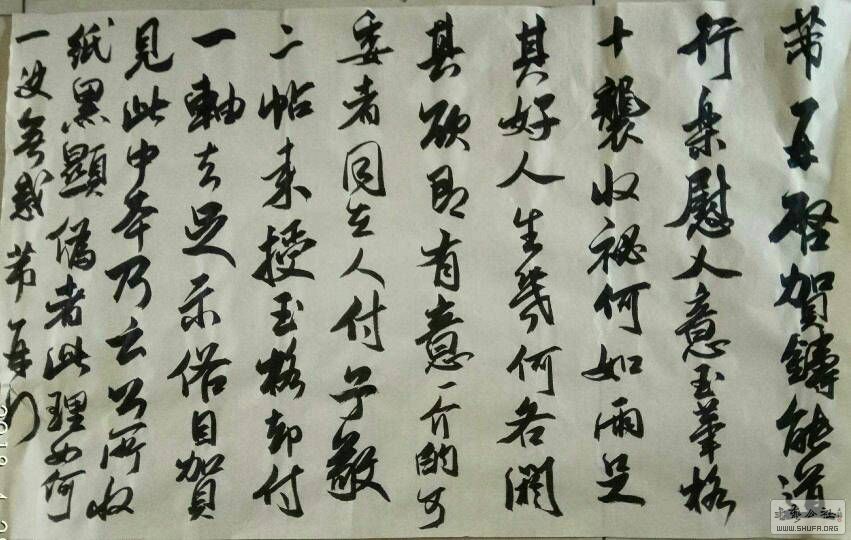 芾再启贺铸能道
行乐慰人意玉笔格
十襲收祕何如兩足
其好人生幾何各閼
其欲即有意一介的可
委者同去人付子敬
二帖来授玉格却付
一軸去足示俗目贺
見此中本乃云公所收
纸黑顯偽者此理如何
一决無惑芾再行
WWW.SHUFA.ORG